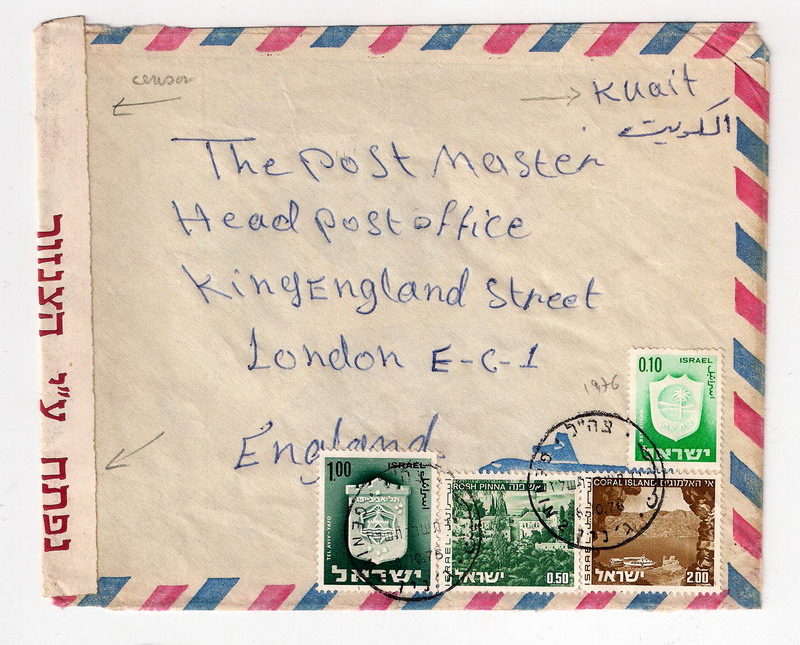 censor
Kuait
الكويت
The post Master
Head post office
King England Street
London E-C-1
England
1976
נפתח ע"י הצנזור
0.10 ISRAEL
اسرائيل
ישראל
1.00 ISRAEL
תל-אביב-יפו
اسرائيل
TEL AVIV - YAFO
ישראל
ROSH PINNA ראש פנה
ISRAEL
ישראל 0.50
CORAL ISLAND אי האלמוגים
ISRAEL
ישראל 2.00
צה"ל